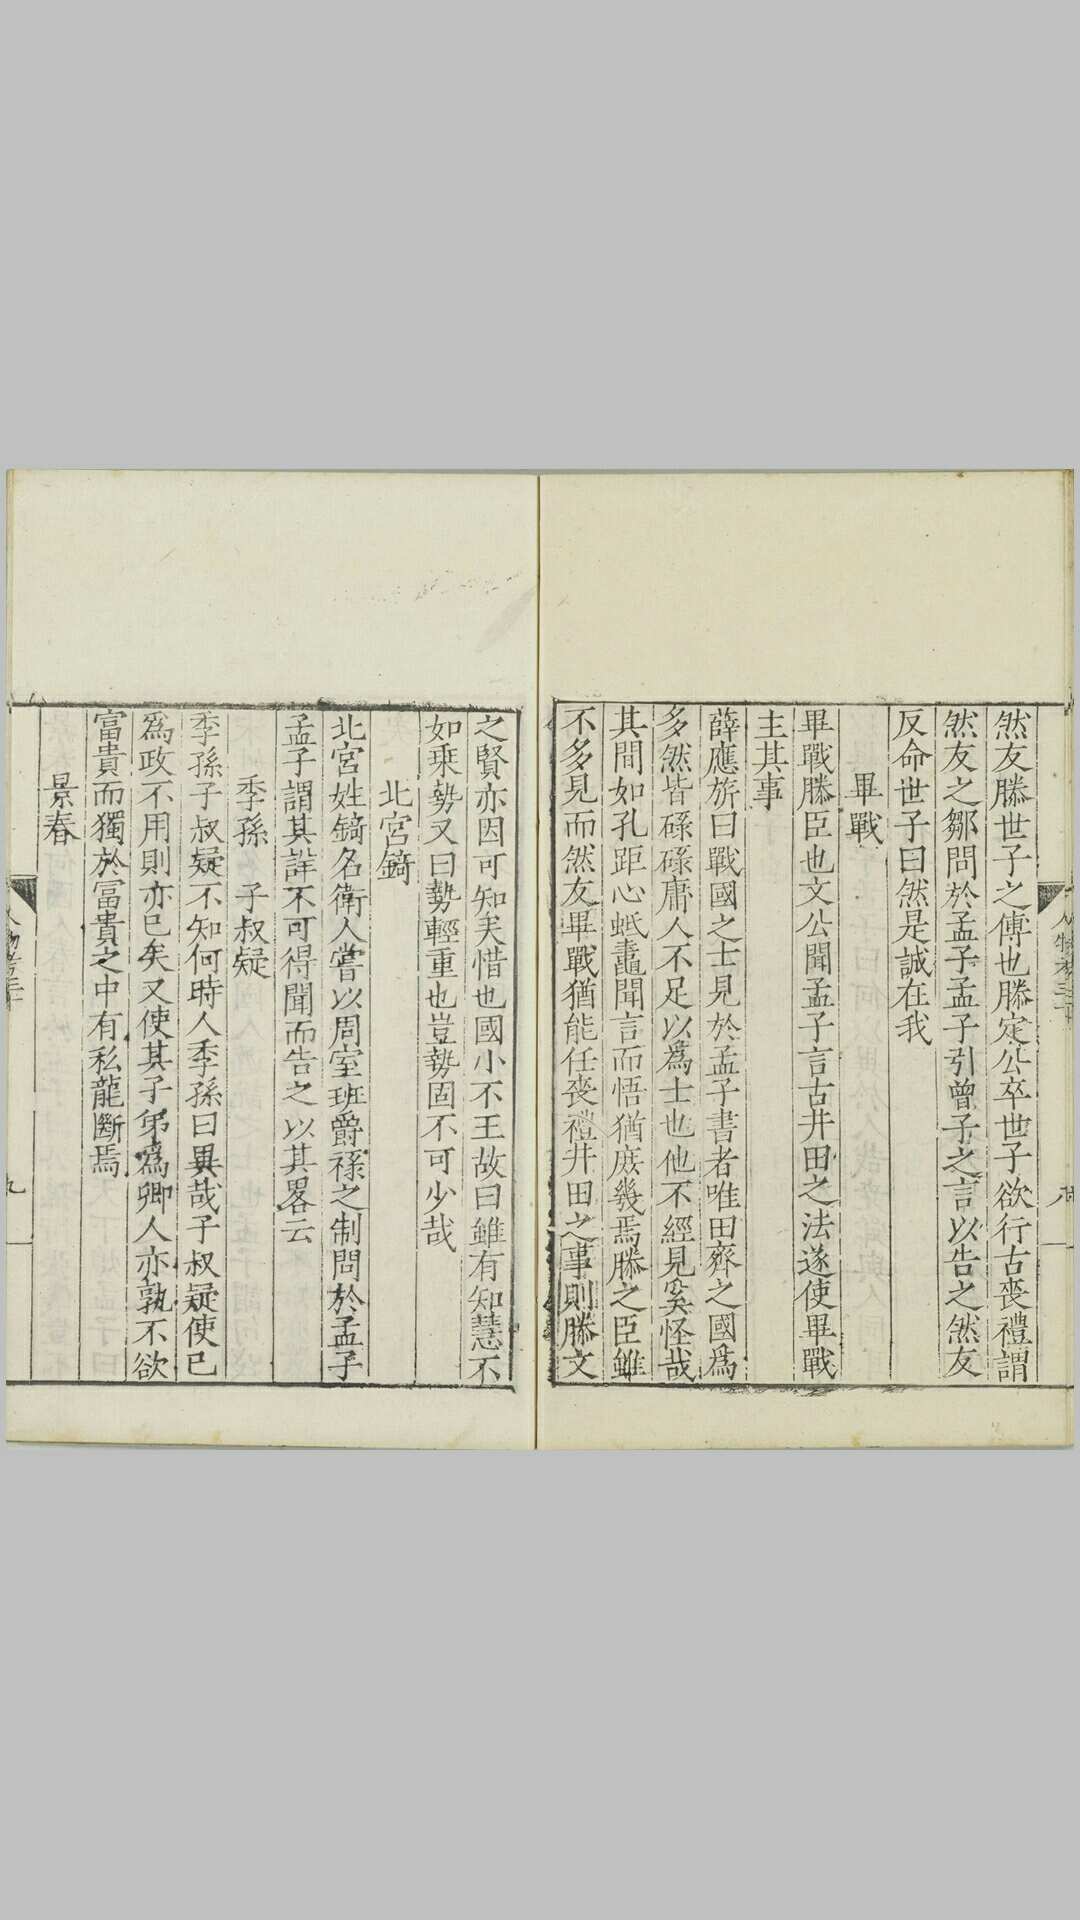 然友滕世子之傅也滕定公卒世子欲行古喪禮謂
然友之鄒問於孟子孟子引曾子之言以告之然友
反命世子曰然是誠在我
畢戰
畢戰滕臣也文公聞孟子言古井田之法遂使畢戰
主其事
薛應旂曰戰國之士見於孟子書者唯田齊之國爲
多然皆碌碌庸人不足以爲士也他不經見奚怪哉
其間如孔距心蚳鼃聞言而悟猶庶幾焉滕之臣雖
不多見而然友畢戰猶能任喪禮井田之事則滕文
之賢亦因可知矣惜也國小不王故曰雖有知慧不
如乗勢又曰勢輕重也豈勢固不可少哉
北宮錡
北宮姓錡名衛人嘗以周室班爵祿之制問於孟子
孟子謂其詳不可得聞而告之以其畧云
季孫　子叔疑
季孫子叔疑不知何時人季孫曰異哉子叔疑使已
爲政不用則亦已矣又使其子弟爲卿人亦孰不欲
富貴而獨於富貴之中有私龍斷焉
景春
九